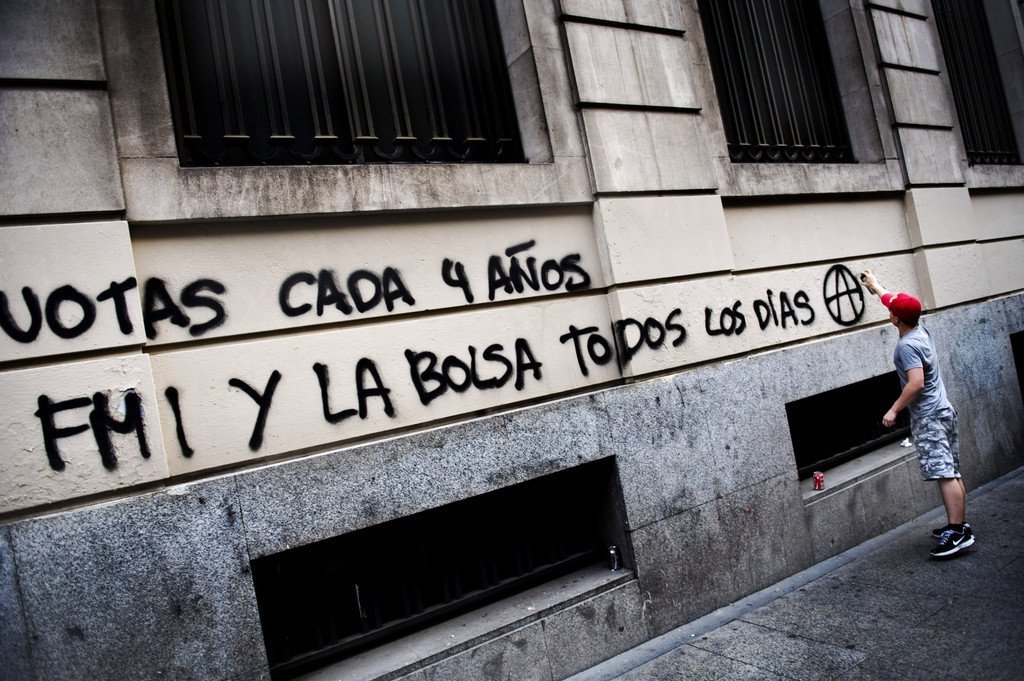 VOTAS CADA 4 AÑOS
FMI Y LA BOLSA TODOS LOS DÍAS Ⓐ